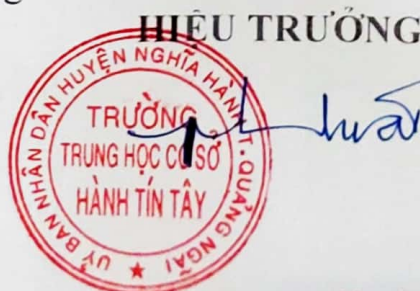 HIỆU TRƯỞNG
ỦY BAN NHÂN DÂN HUYỆN NGHĨA HÀNH T. QUẢNG NGÃI
TRƯỜNG
TRUNG HỌC CƠ SỞ
HÀNH TÍN TÂY